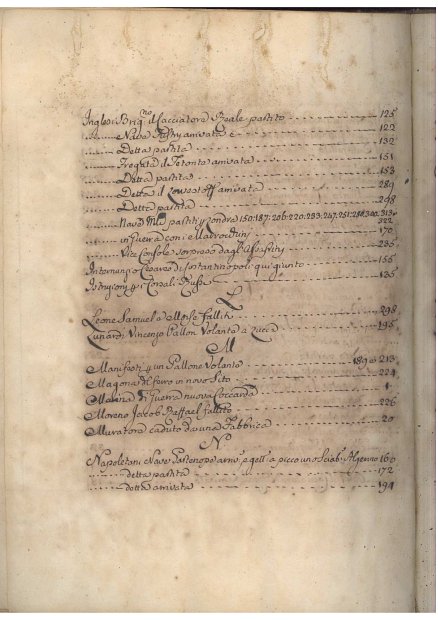 Inglesi Brig.no il Cacciatore Reale partito 125
Nave arrivata 122
Detta partita 132
Fregata il arrivata 151
Detta partita 153
Detta il arrivata 289
Detta partita 298
Nave partiti Londra 150. 187. 206. 220. 233. 247. 251. 313.
322
in Guerra con i 170
Vice Console sorpreso dagli 235
Internunzio Cesareo Costantinopoli qui giunto 155
Corsali Russi 135
L
Leone Samuel e Moise Falliti 298
Lunardi Vincenzo Pallon Volante a Lucca 195
M
Manifesti un Pallone Volante 189 e 213
Magona del ferro in novo Sito 224
Marina di Guerra nuova Coccarda 1
Moreno Jacob Raffael fallito 226
Muratore caduto da una Fabbrica 20
N
Napoletani Nave Partenope a picco uno Sciab. Algerino 160
detta partita 172
detta arrivata 194